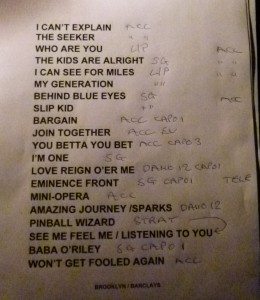 I CAN'T EXPLAIN ACC
THE SEEKER " "
WHO ARE YOU LIP ACC
THE KIDS ARE ALRIGHT SG " "
I CAN SEE FOR MILES LIP " "
MY GENERATION "
BEHIND BLUE EYES SG ACC
SLIP KID
BARGAIN ACC CAPO 1
JOIN TOGETHER ACC
YOU BETTA YOU BET ACC CAPO 3
I'M ONE SG
LOVE REIGN O'ER ME DANO 12 CAPO 1
EMINENCE FRONT SG CAPO 1 TELE
MINI-OPERA ACC
AMAZING JOURNEY /SPARKS DANO 12
PINBALL WIZARD STRAT
SEE ME FEEL ME / LISTENING TO YOU
BABA O'RILEY SG CAPO 1
WON'T GET FOOLED AGAIN ACC
BROOKLYN / BARCLAYS